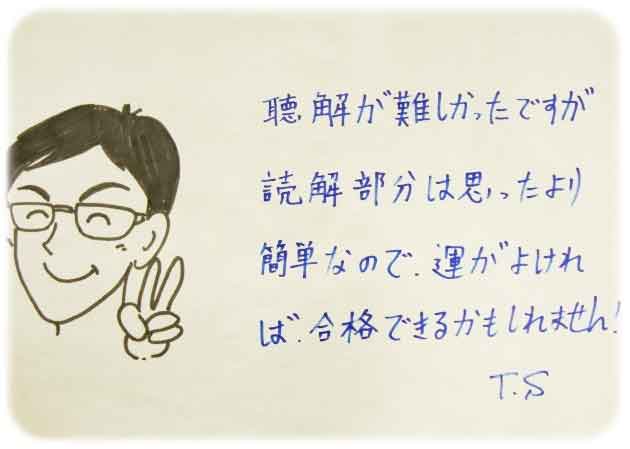 聴解が難しかったですが
読解部分は思ったより
簡単なので、運がよけれ
ば、合格できるかもしれません!
T.S